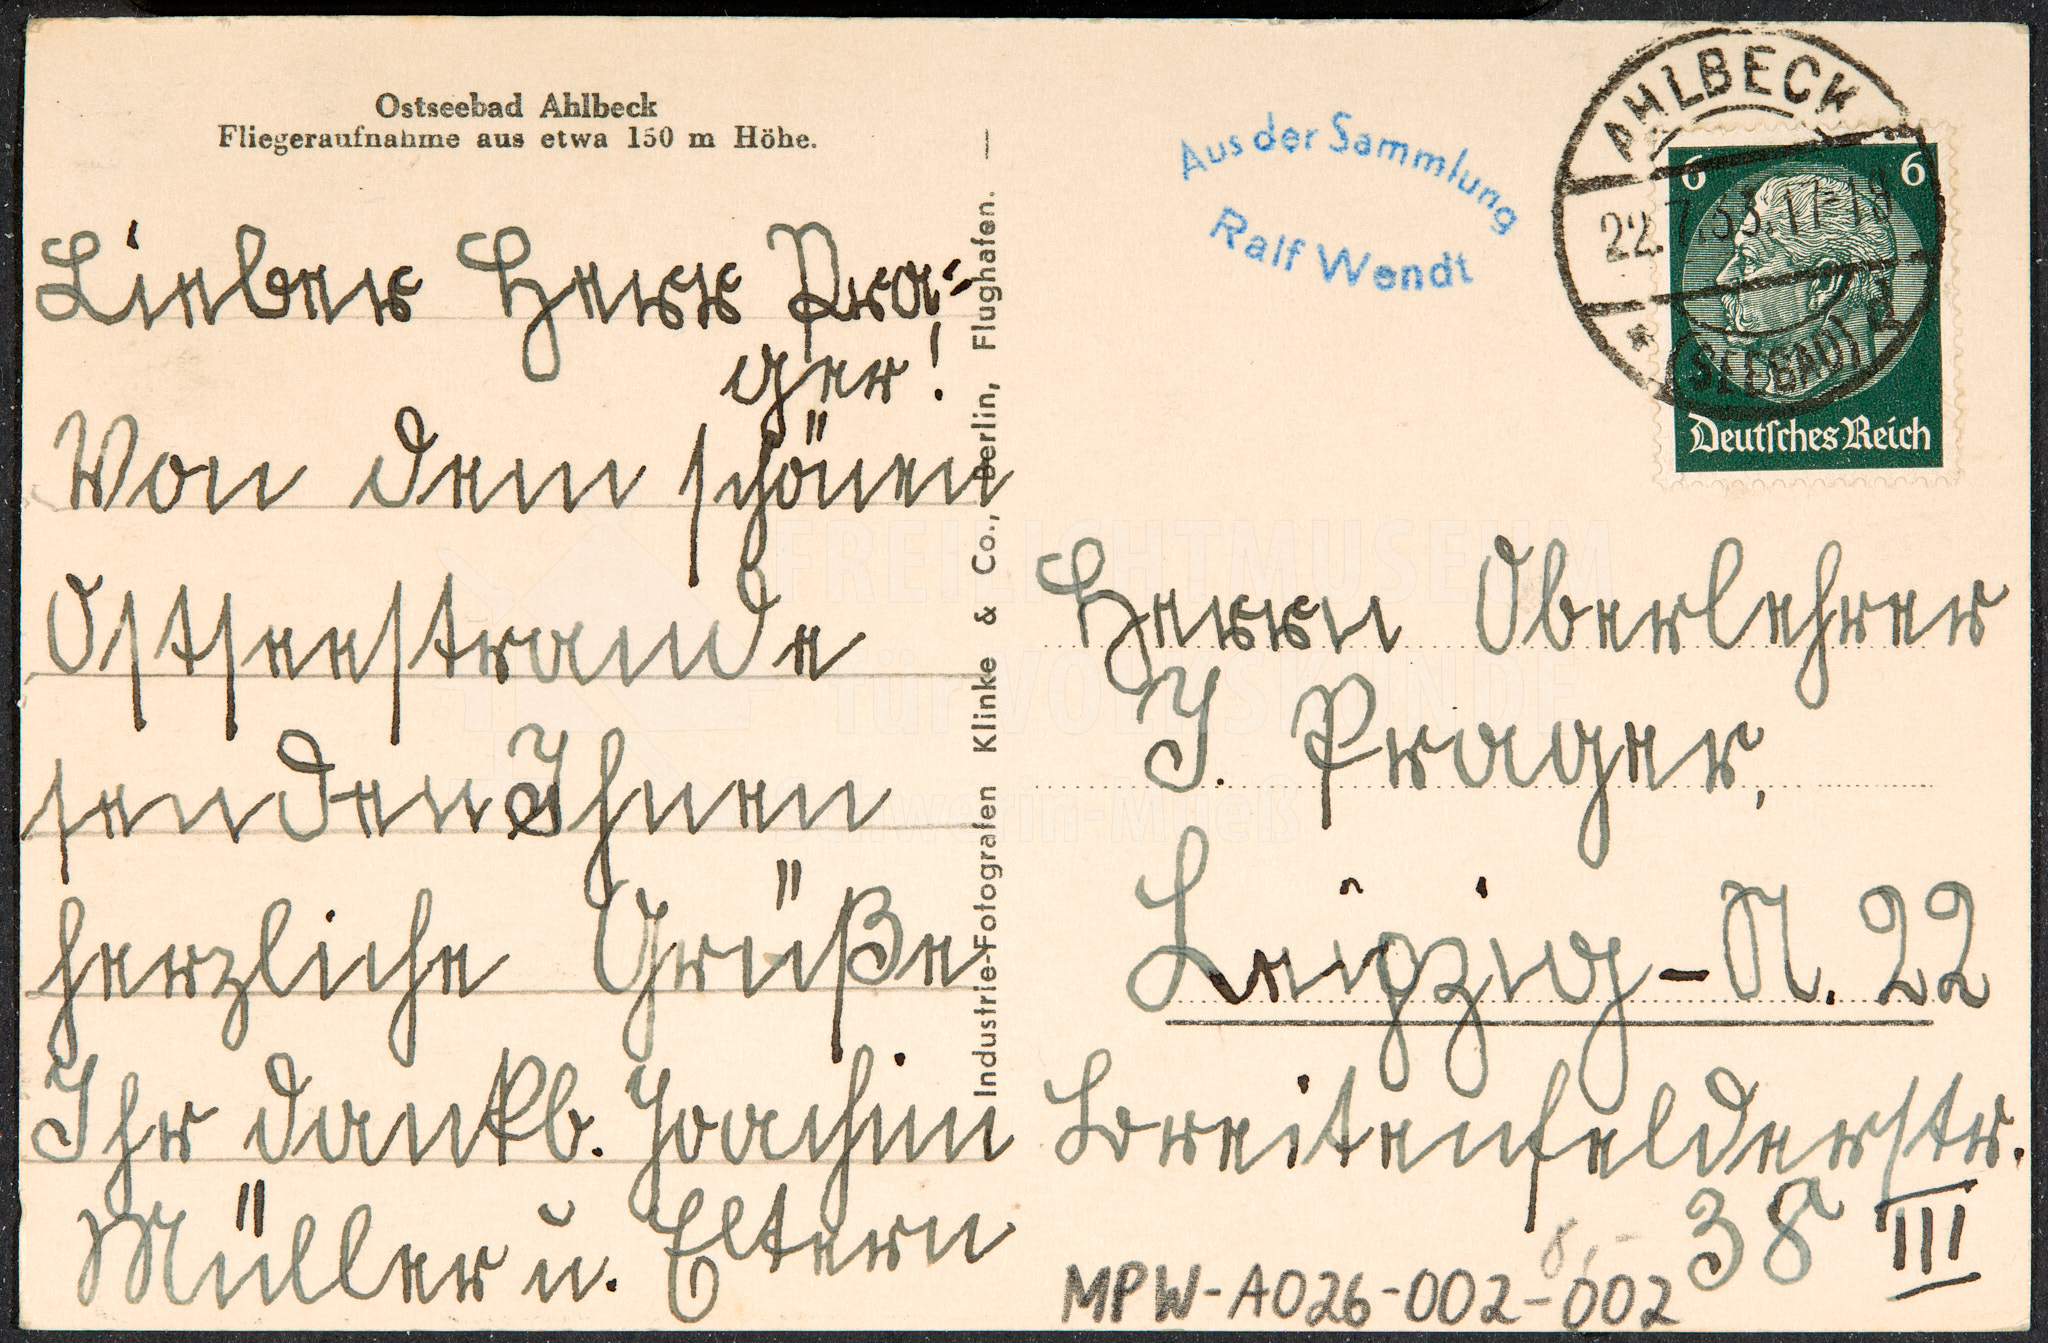 Ostseebad Ahlbeck
Fliegeraufnahme aus etwa 150 m Höhe.
Lieber Herr Pra-
ger!
Von dem schönen
Ostseestrande
senden Ihnen
herzliche Grüße
Ihr dankb. Joachim
Müller u. Eltern
Industrie-Fotografen Klinke & Co., Berlin, Flughafen. —
Aus der Sammlung
Ralf Wendt
AHLBECK
22.7.33.17-18
* (SEEBAD) a
6 6
Deutsches Reich
Herrn Oberlehrer
J. Prager,
Leipzig-N. 22
Breitenfelderstr.
38 III
8,-
MPW-A026-002-002
FREILICHTMUSEUM
für VOLKSKUNDE
Schwerin-Mueß